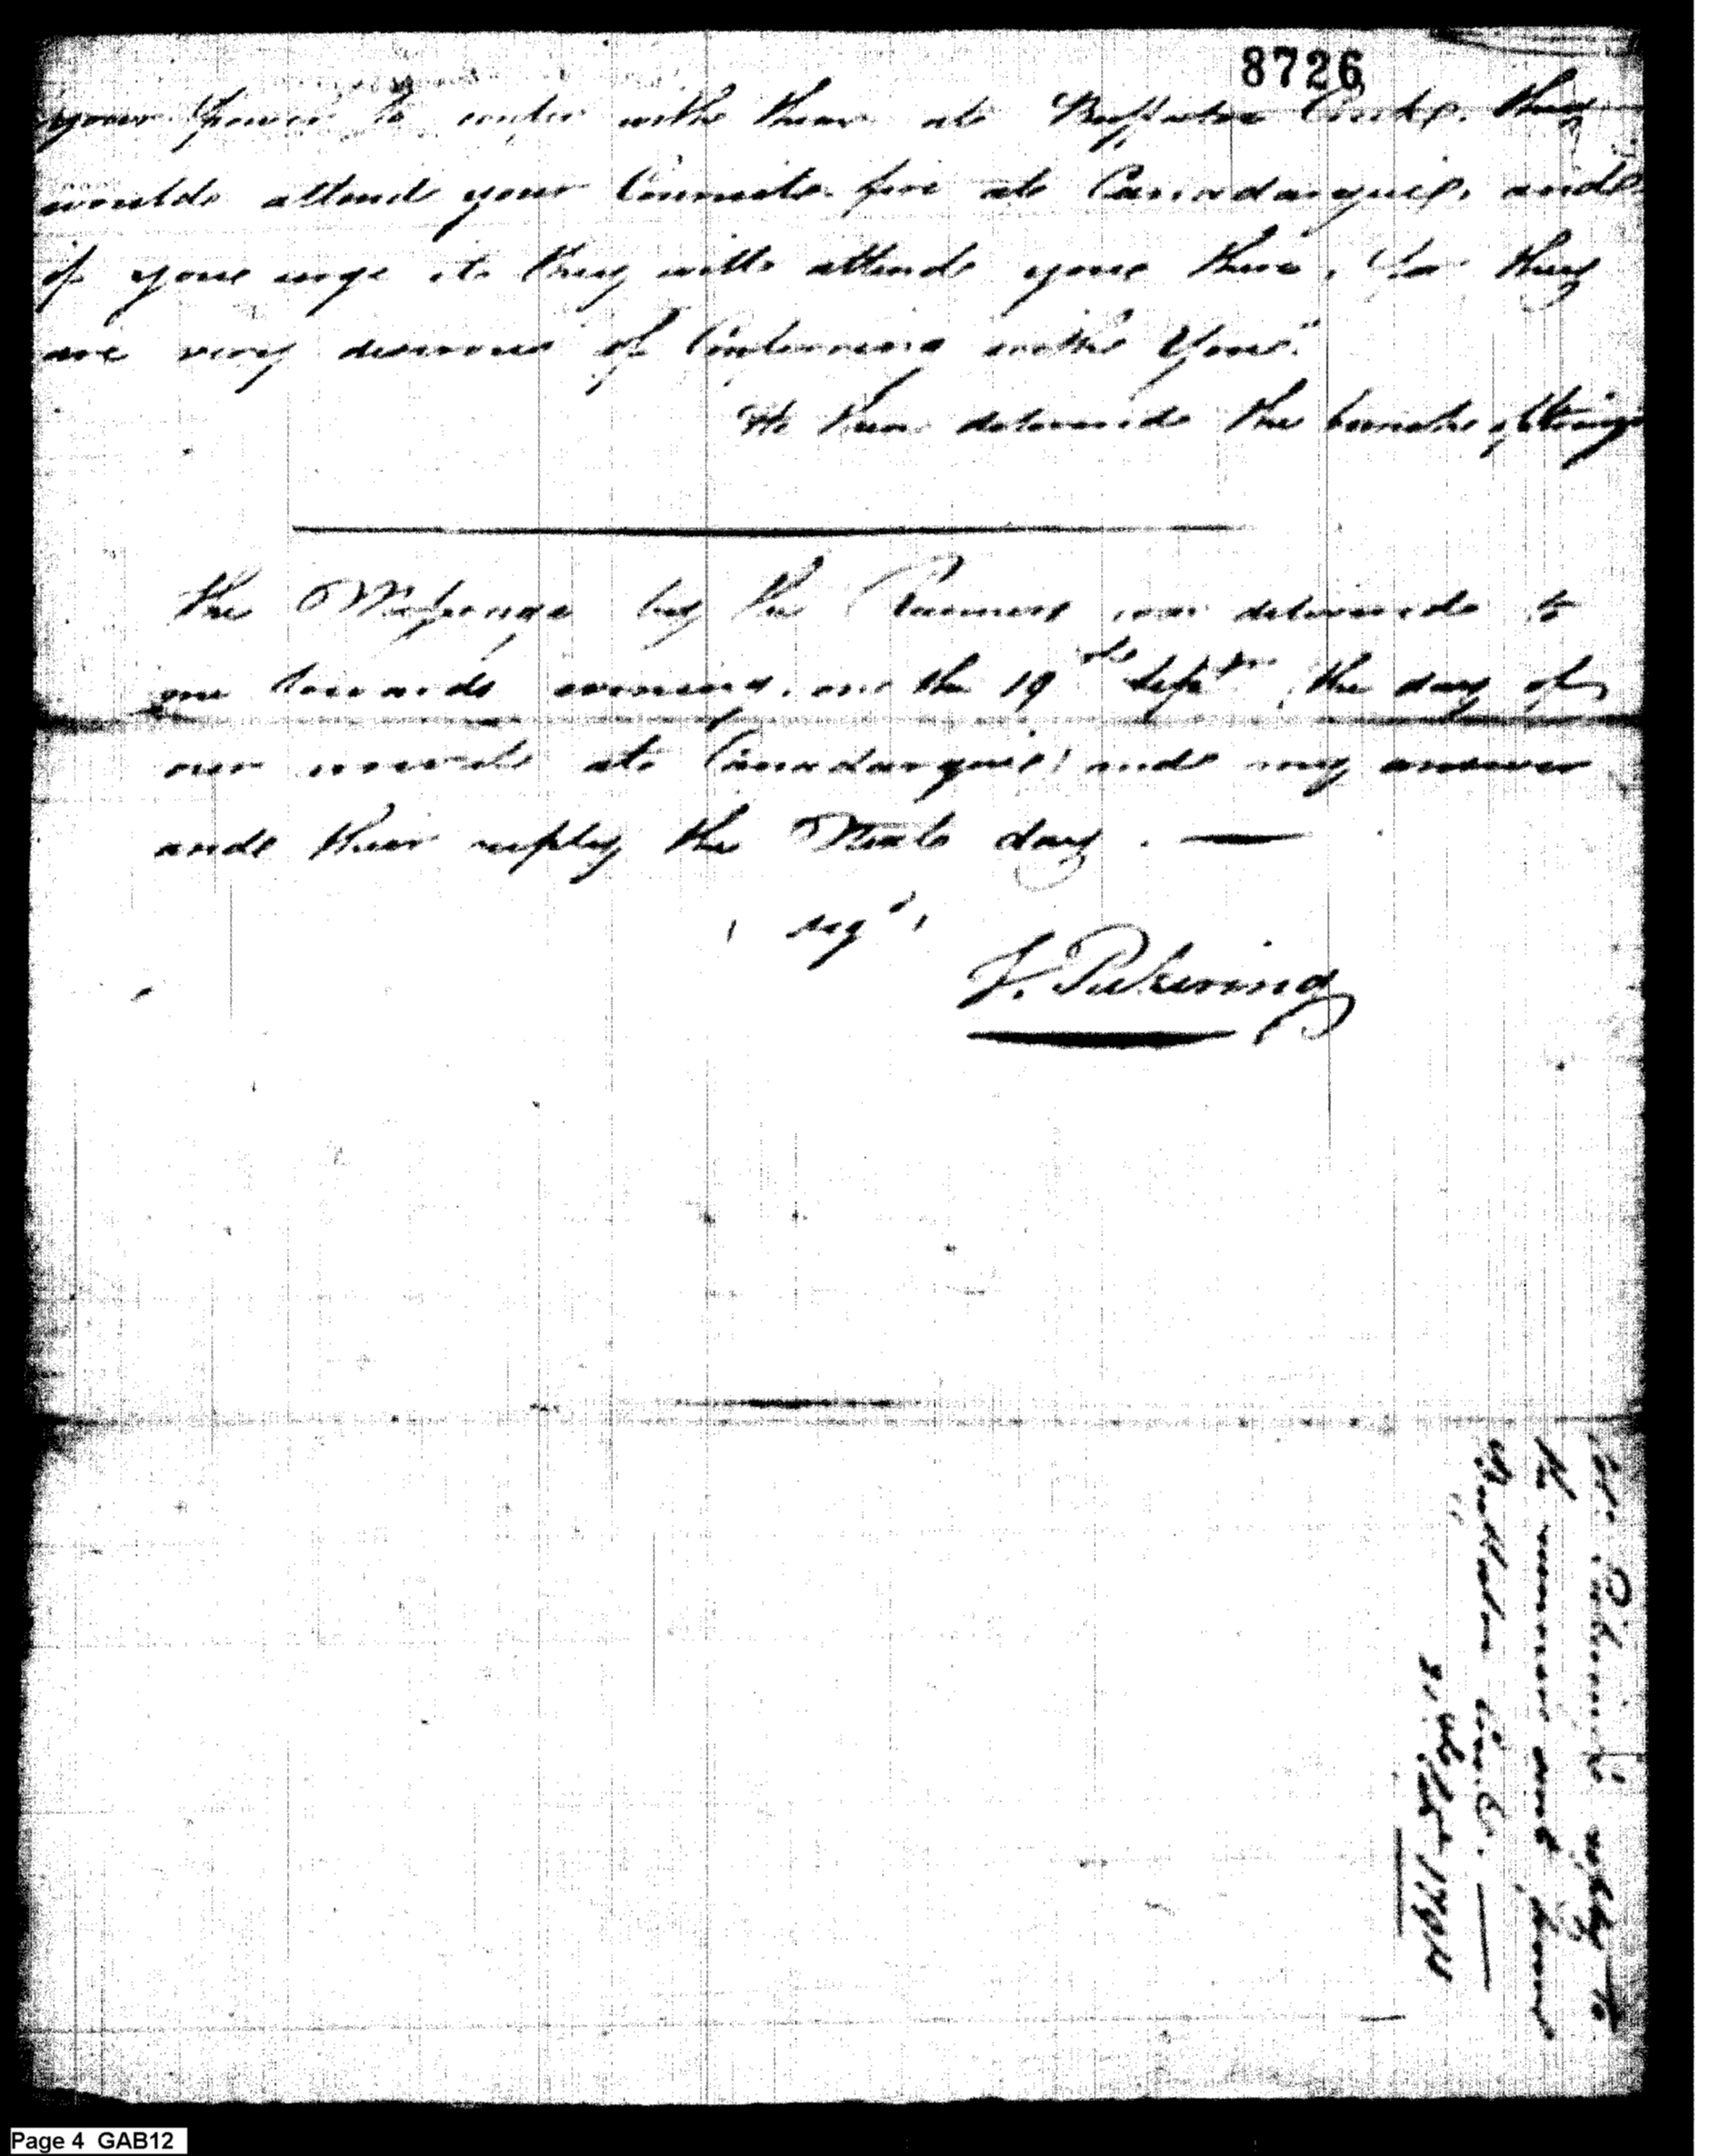 8726
your power to confer with them at Buffaloe Creek, they
would attend your Council fire at Canadarquie, and
if you urge it they will attend you there, for they
are very desirous of Conferring with You."
He then delivered the bunch of strings
The Message by the Runners was delivered to
me towards evening, on the 19th Septr, the day of
our arrival at Canadarquie; and my answer
and their reply the Next day. —
(sigd)
T. Pickering
Mr. Pickering's reply to
the runners sent from
Buffaloe Creek. —
21 Sept 1794
Page 4 GAB12